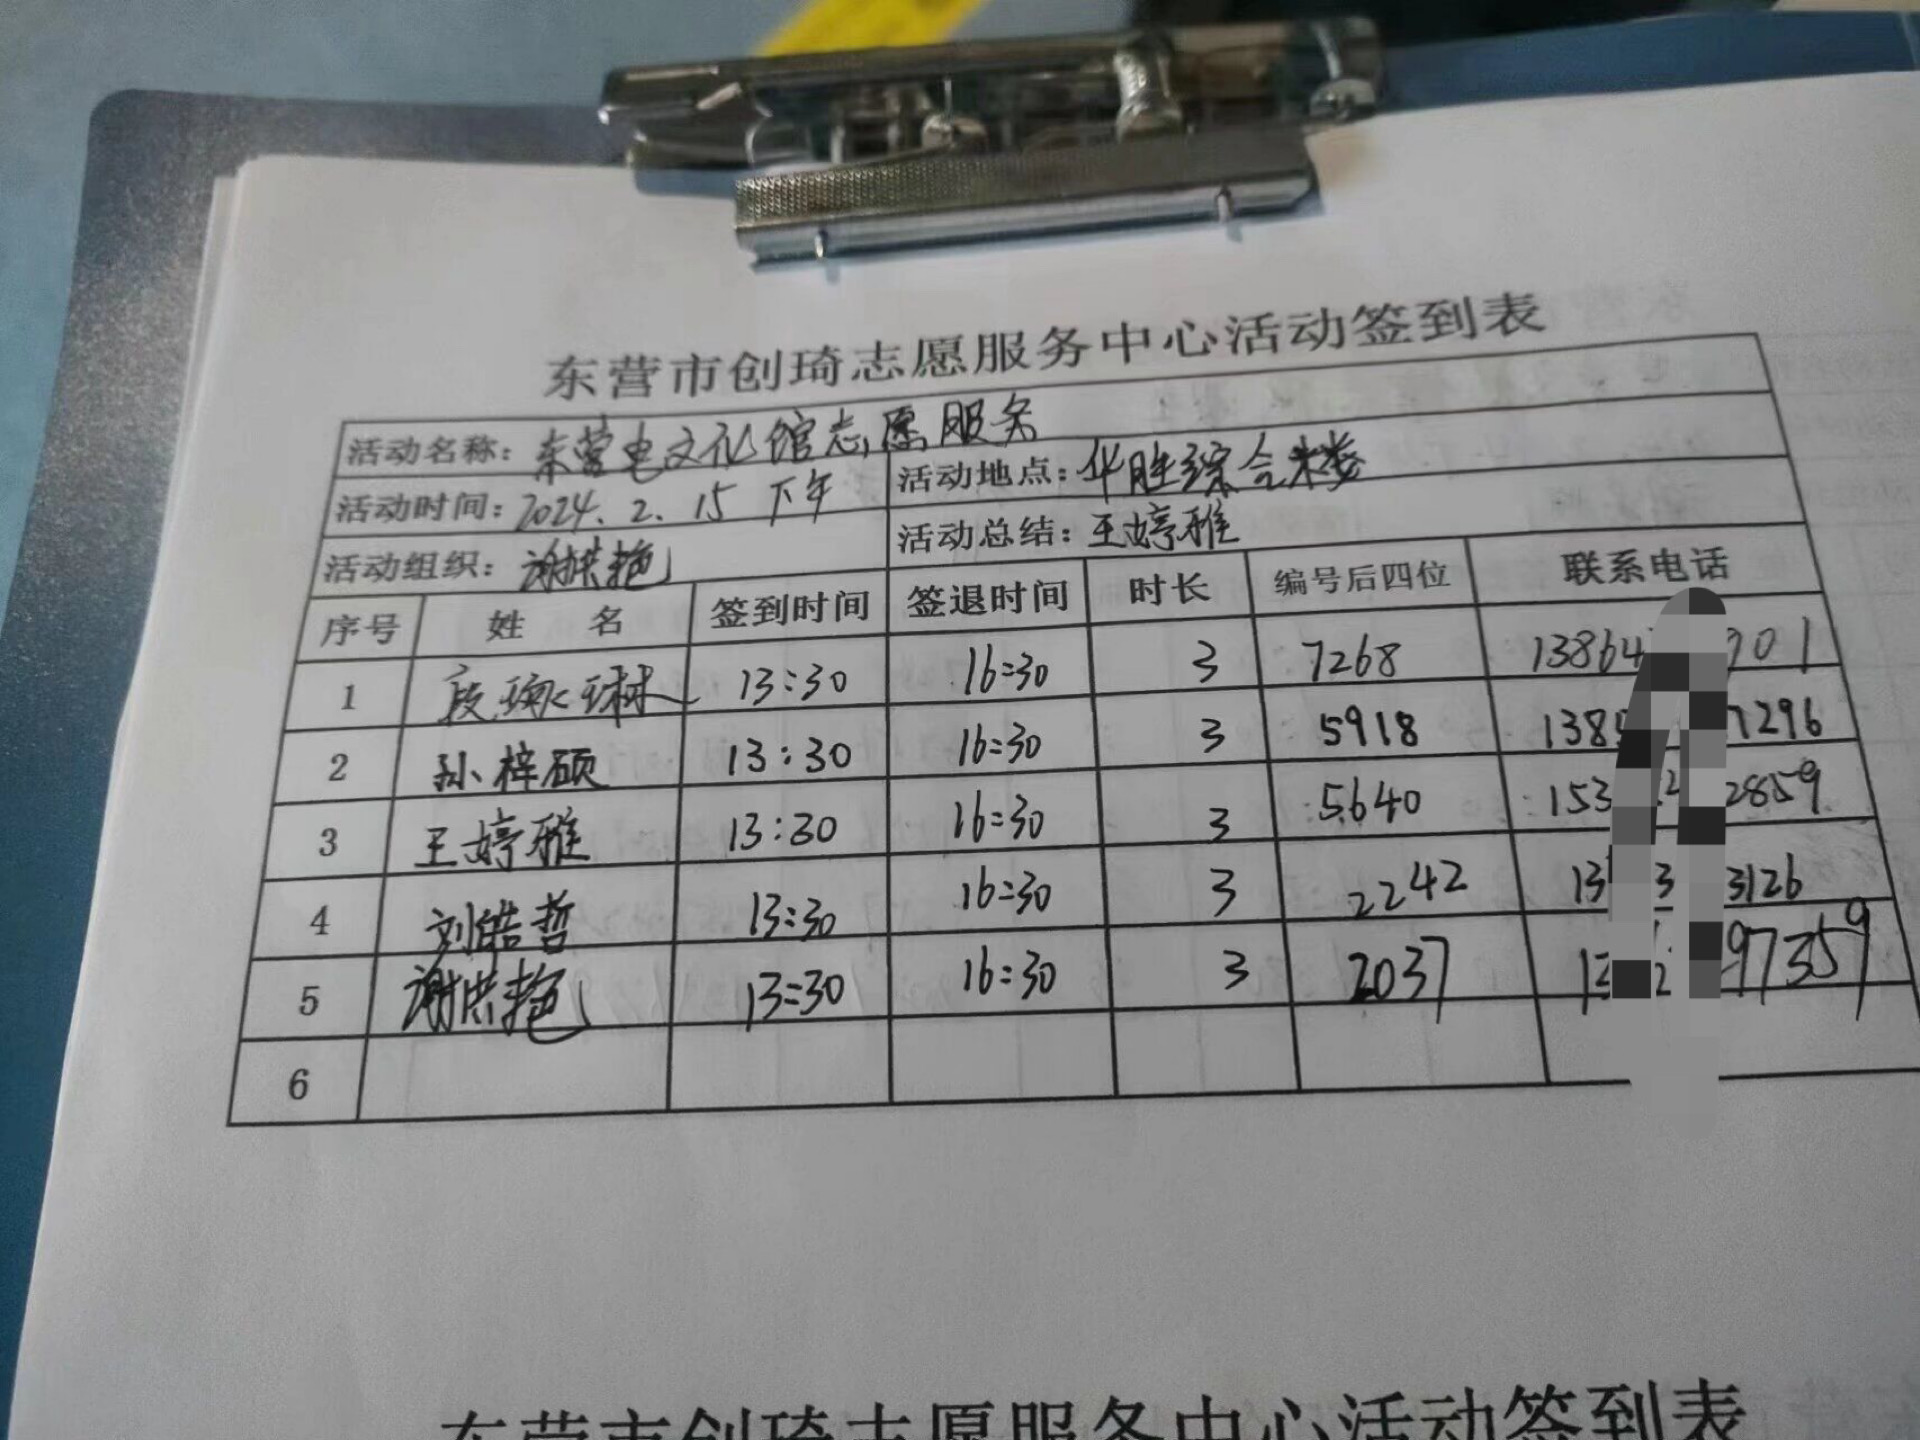 东营市创琦志愿服务中心活动签到表
活动名称：东营电文化馆志愿服务
活动时间：2024.2.15 下午 活动地点：华胜综合楼
活动组织：谢洪艳 活动总结：王婷雅
序号 姓 名 签到时间 签退时间 时长 编号后四位 联系电话
1 段琳 13:30 16:30 3 7268 13864 901
2 孙梓硕 13:30 16:30 3 5918 138 7296
3 王婷雅 13:30 16:30 3 5640 153 2 2859
4 刘皓哲 13:30 16:30 3 2242 13 3 3126
5 谢洪艳 13:30 16:30 3 2037 13 2 97359
6
东营市创琦志愿服务中心活动签到表